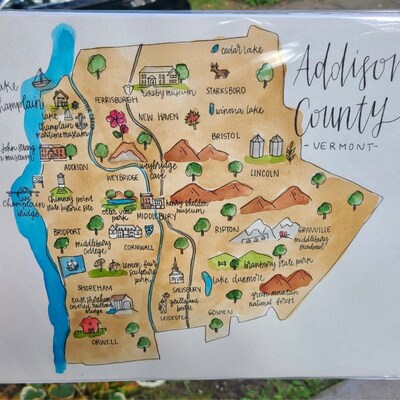 Addison
County
- VERMONT -
cedar lake
Lake
Champlain
Rokeby museum
FERRISBURGH
STARKSBORO
lake
champlain
maritime museum
NEW HAVEN
winona lake
BRISTOL
John Strong
museum
ADDISON
weybridge
cave
WEYBRIDGE
LINCOLN
Champlain
bridge
chimney point
state historic site
otter view
park
MIDDLEBURY
henry sheldon
museum
BRIDPORT
middlebury
college
CORNWALL
RIPTON
GRANVILLE
middlebury
lemon fair
sculpture
park
branbury state park
SHOREHAM
SALISBURY
lake dunmore
east shoreham
covered railroad
bridge
LEICESTER
green mountain
national forest
GOSHEN
ORWELL